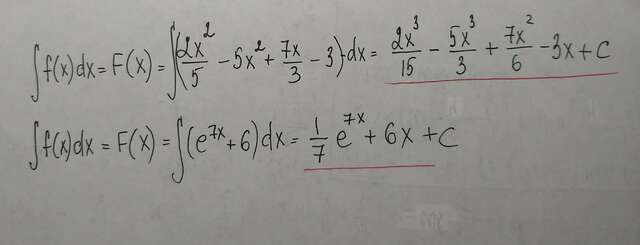 ∫f(x)dx = F(x) = ∫(2x²/5 - 5x² + 7x/3 - 3)·dx = 2x³/15 - 5x³/3 + 7x²/6 - 3x + C
∫f(x)dx = F(x) = ∫(e⁷ˣ + 6)dx = 1/7 e⁷ˣ + 6x + C